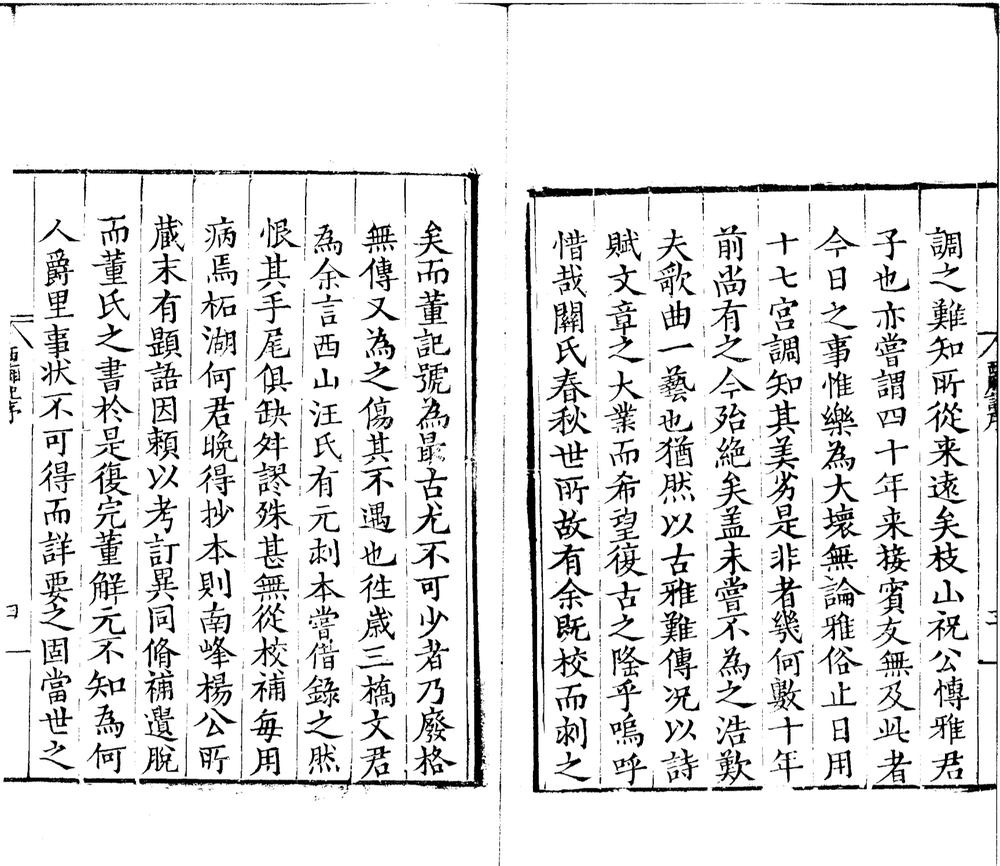 調之難知所從来遠矣枝山祝公愽雅君
子也亦嘗謂四十年来接賓友無及此者
今日之事惟樂為大壞無論雅俗止日用
十七宫調知其美劣是非者幾何數十年
前尚有之今殆絶矣盖未嘗不為之浩歎
夫歌曲一藝也猶然以古雅難傳况以詩
賦文章之大業而希望復古之隆乎嗚呼
惜哉關氏春秋世所故有余既校而刻之
矣而董記號為最古尤不可少者乃廢格
無傳又為之傷其不遇也徃歳三橋文君
為余言西山汪氏有元刻本嘗借錄之然
恨其手尾俱缺舛謬殊甚無從校補每用
病焉柘湖何君晩得抄本則南峰楊公所
蔵末有題語因頼以考訂異同脩補遺脫
而董氏之書於是復完董解元不知為何
人爵里事状不可得而詳要之固當世之